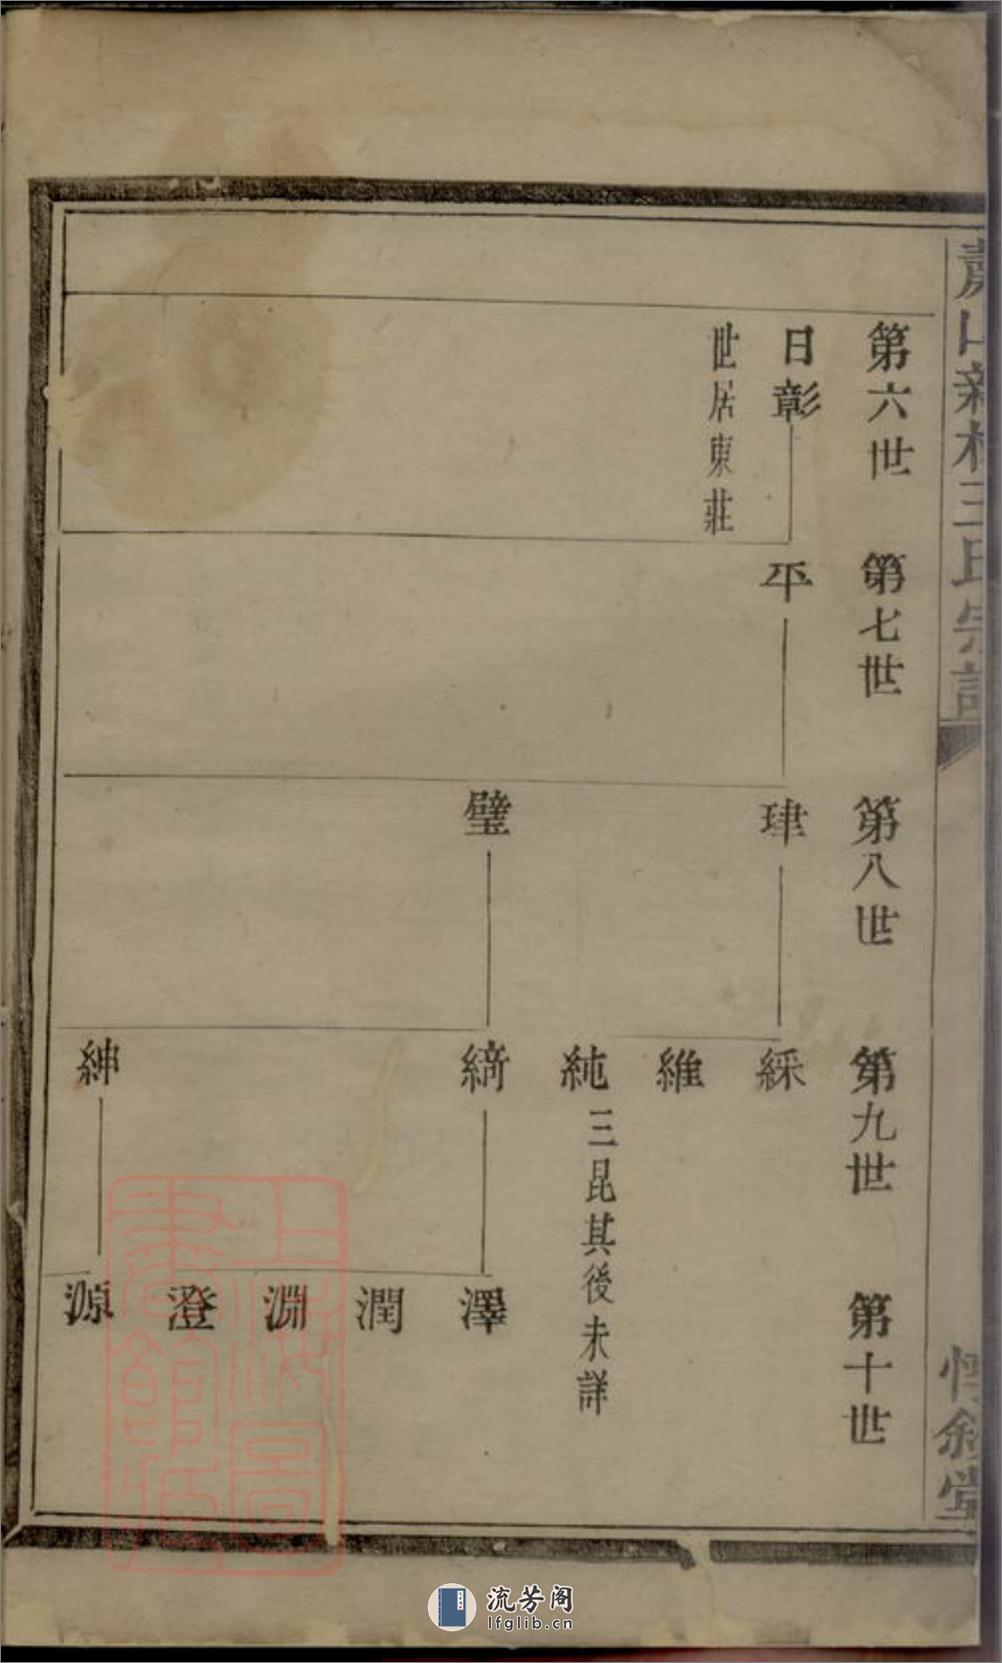 蕭山新村王氏宗譜
惇敘堂
第六世
日彰
世居東莊
第七世
平
第八世
肆
璧
第九世
綵
維
純
三昆其後未詳
締
紳
第十世
澤
潤
淵
澄
源
上海圖書館藏
流芳阁
lfglib.cn